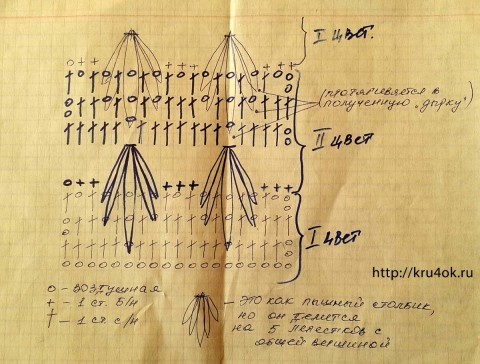 I цвет.
(протягивается в
полученную „дырку")
II цвет
I цвет
http://kru4ok.ru
o - воздушная
+ - 1 ст. б/н
† - 1 ст. с/н
- это как пышный столбик,
но он делится
на 5 лепестков с
общей вершиной